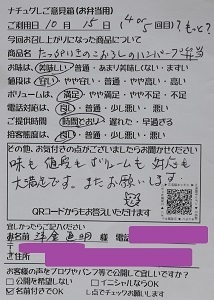 ナチュグレご意見箱(お弁当用)
ご利用日 10 月 15 日 (4or5回目)?もっと?
今回お召し上がりになった商品について
商品名 たっぷりきのこおろしのハンバーグ弁当
お味は、美味しい・普通・あまり美味しくない・まずい
値段は 安い・やや安い・普通・やや高い・高い
ボリュームは、満足・やや満足・普通・やや不足・不足
電話対応は、良い・普通・少し悪い・悪い
ご提供時間 時間どおり・遅れた・早過ぎる
接客態度は、良い・普通・少し悪い・悪い
その他、お気付きの点がございましたらお聞かせください
味も値段もボリュームも対応も
大満足です。またお願いします。
QRコードからもお答えいただけます
宜しかったらご記入ください
お名前 様 電話
ご住所
お客様の声をブログやパンフ等で公開して宜しいですか?
□公開を希望しない □イニシャルならOK
名前付きでOK し点でチェックお願いします